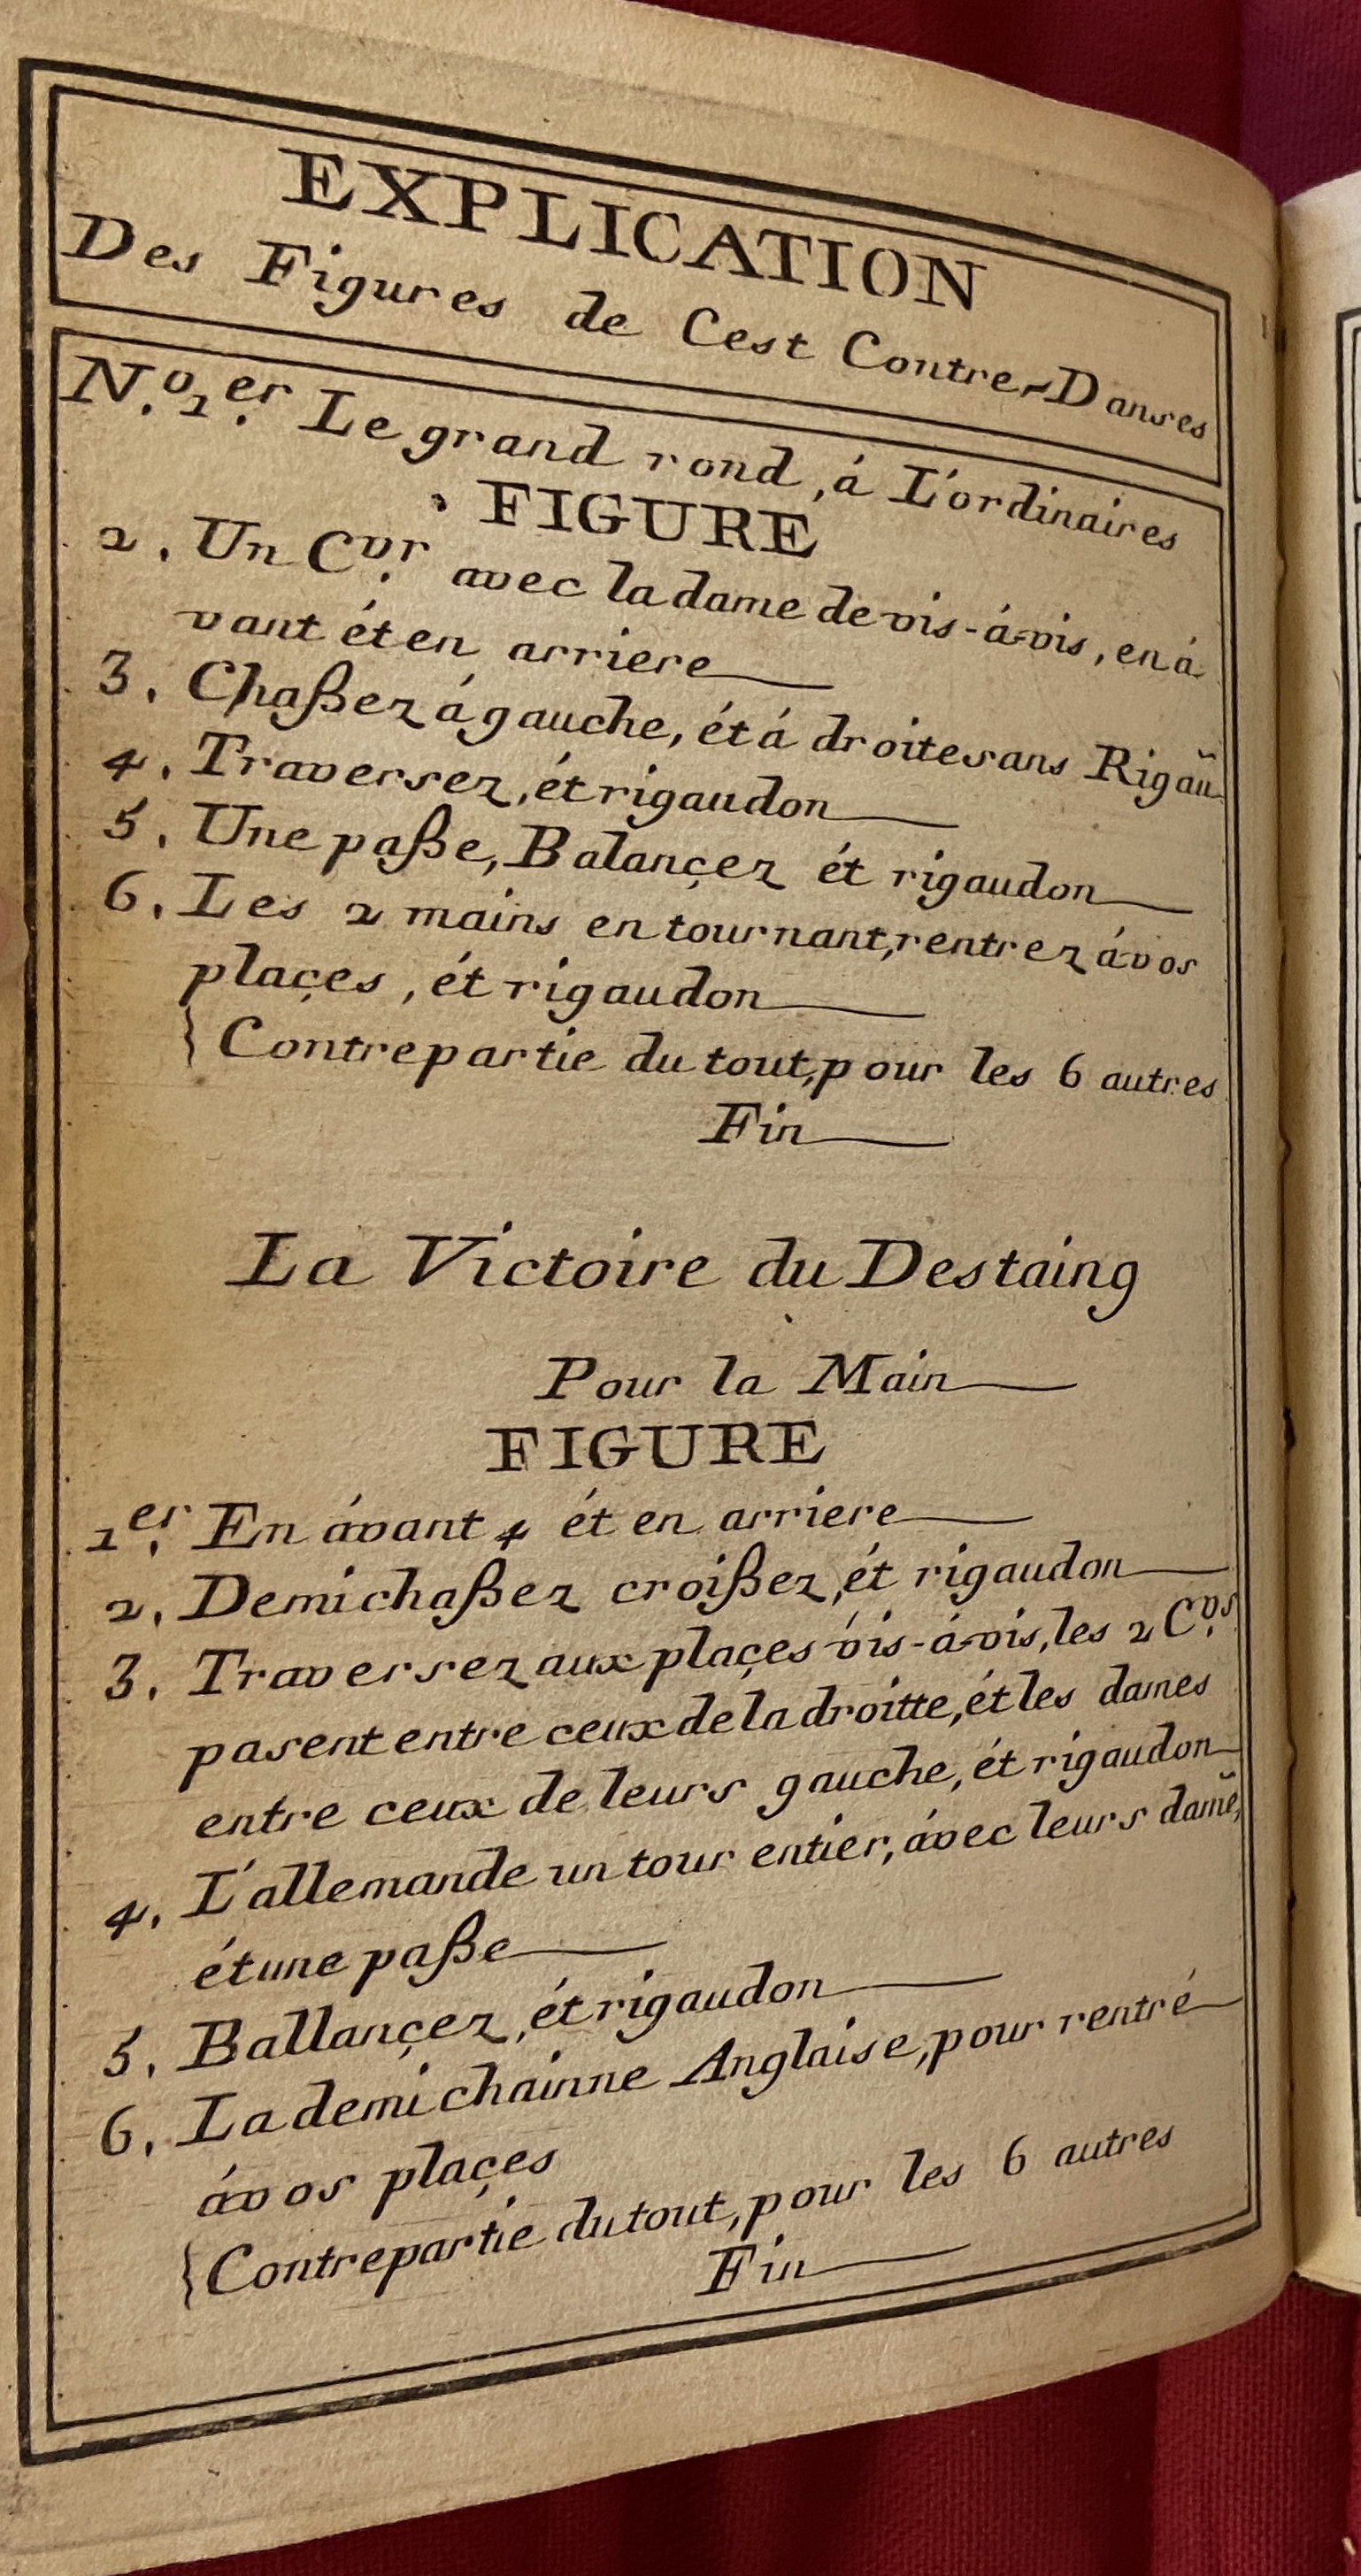 EXPLICATION
Des Figures de Cest Contre-Danses
N.º 1.er Le grand rond, á L'ordinaires
FIGURE
2. Un C.vr avec la dame de vis-á-vis, en á
vant ét en arriere
3. Chaßez á gauche, ét á droite sans Rigaũ
4. Traversez, ét rigaudon
5. Une paße, Balançez ét rigaudon
6. Les 2 mains en tournant, rentrez á vos
plaçes, ét rigaudon
{ Contrepartie du tout, pour les 6 autres
Fin
La Victoire du Destaing
Pour la Main
FIGURE
1.er En ávant 4 ét en arriere
2. Demi chaßez croißez, ét rigaudon
3. Traversez aux plaçes vis-á-vis, les 2 C.vs
pasent entre ceux de la droitte, ét les dames
entre ceux de leurs gauche, ét rigaudon
4. L'allemande un tour entier, ávec leurs dam̃e,
ét une paße
5. Ballançez, ét rigaudon
6. La demi chainne Anglaise, pour rentré
á vos plaçes
{ Contrepartie du tout, pour les 6 autres
Fin